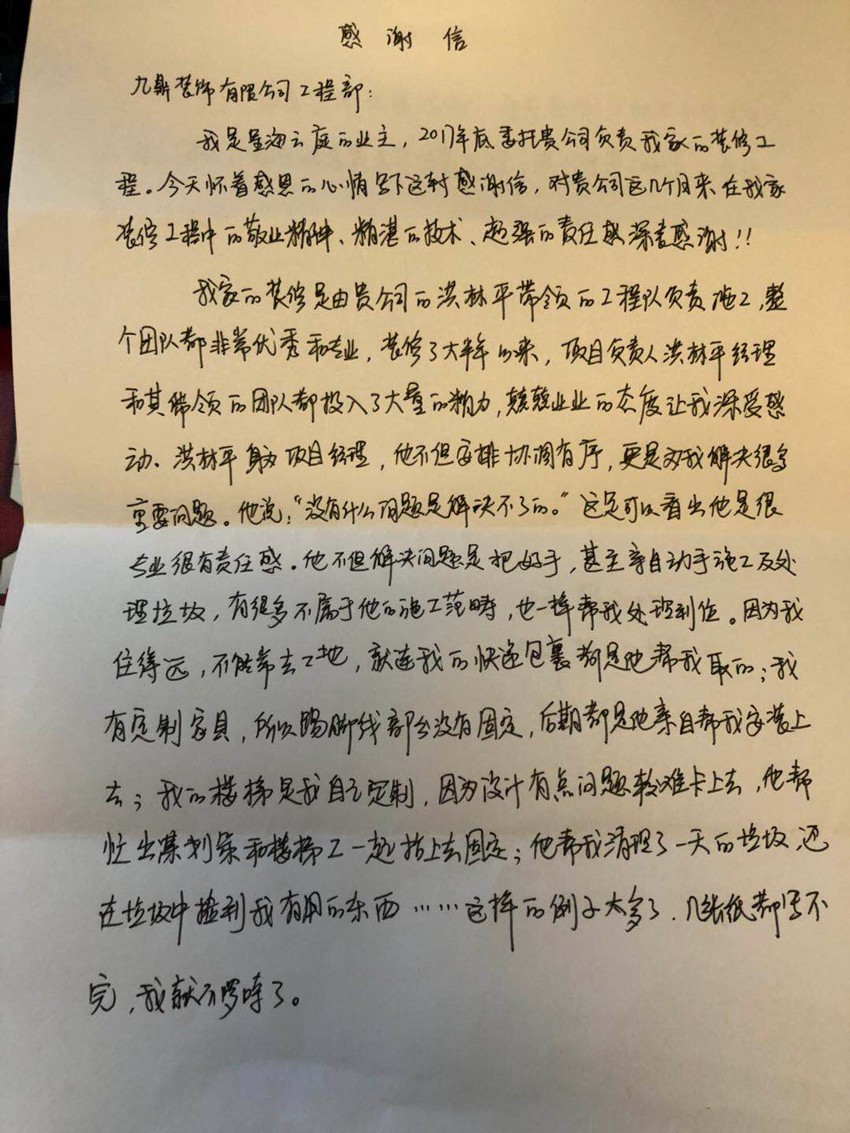 感谢信
九鼎装饰有限公司工程部:
我是星海云庭的业主，2017年底委托贵公司负责我家的装修工
程。今天怀着感恩的心情写下这封感谢信，对贵公司这几个月来在我家
装修工程中的敬业精神、精湛的技术、超强的责任感深表感谢!!
我家的装修是由贵公司的洪林平带领的工程队负责施工，整
个团队都非常优秀和专业，装修了大半年以来，项目负责人洪林平经理
和其带领的团队都投入了大量的精力，兢兢业业的态度让我深受感
动、洪林平身为项目经理，他不但安排协调有序，更是为我解决很多
重要问题。他说："没有什么问题是解决不了的。"这足可以看出他是很
专业很有责任感。他不但解决问题是把好手，甚至亲自动手施工及处
理垃圾，有很多不属于他的施工范畴，也一样帮我处理到位。因为我
住得远，不能常去工地，就连我的快递包裹都是他帮我取的；我
有定制家具，所以踢脚线部分没有固定，后期都是他亲自帮我安装上
去；我的楼梯是我自己定制，因为设计有点问题较难卡上去，他帮
忙出谋划策和楼梯工一起抬上去固定；他帮我清理了一天的垃圾，还
在垃圾中捡到我有用的东西……这样的例子太多了，几张纸都写不
完，我就不啰嗦了。